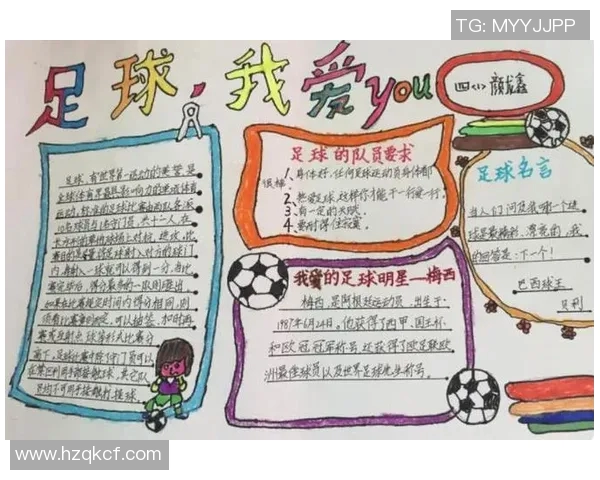 TG: MYYJJPP
足球，我爱you
四(1) 颜鑫
足球，有"世界第一运动"的美誉，是
全球体育界最具影响力的单项体育
运动，标准的足球比赛由两队各派
10名球员与1名守门员，共十一人，在
长方形的草地球场上对抗、进攻，比
赛目的是尽量将足球射入对方的球门
内，每射入一球就可以得到一分，当比
赛完毕后，得分最多的一队则胜出，
如果在比赛规定时间内得分相同，则
须看比赛章则而定，可以抽签、加时再
赛或互射点球等形式比赛分
高下，足球比赛中除了守门员可以
在禁区利用手部接触足球，其它队
员均不可用手接触球
足球的队员要求
1、身体好，任何足球运动员身体都
很棒
2、热爱足球，这样你才能干一行爱一行。
3、有一定的天赋。
4、要耐得住寂寞。
我的足球明星—梅西
梅西，是阿根廷运动员，出生于
1987年6月24日，他获得了西甲、国王杯
和欧冠冠军称号，还获得了欧足联欧
洲最佳球员以及世界足球先生称号。
足球名言
当人们问及我哪一个进
球是最精彩、漂亮的，我
的回答是：下一个！
巴西球王
贝利
www.hzqkcf.com